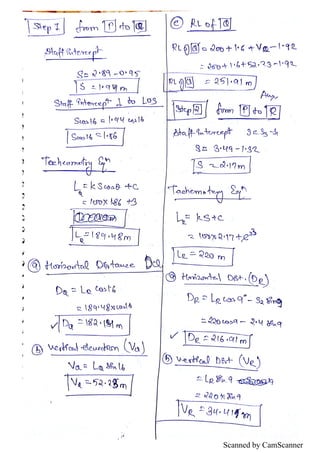 Step 1 from P to Q
Staff intercept
S = 2.89 - 0.95
S = 1.94 m
Staff intercept ⊥ to LOS
S cos16 = 1.94 cos16
S cos16 = 1.86
Tacheometry Eqn
L = k S cosθ + C
= 100 × 1.86 + 3
L = 189.48m
(a) Horizontal Distance
D = L cos16
= 189.48 × cos16
= 182.1 m
(b) Vertical elevation (Va)
Va = L sin16
= 52.23 m
(c) RL of Q
RL of Q = 200 + 1.6 + V - 1.92
= 200 + 1.6 + 52.23 - 1.92
RL of Q = 251.91 m
Step 2 from P to R
Staff Intercept
S = 3.49 - 1.32
S = 2.17m
Tacheometry Eqn
L = kS + C
= 100 × 2.17 +
LR = 220 m
(a) Horizontal Dist. (DR)
DR = LR cos9° - S2 sin9
= 220 cos9 - 2.4 sin9
DR = 216.91 m
(b) Vertical Dist (VR)
= LR sin 9
= 220 × sin9
VR = 34.41 m
Scanned by CamScanner